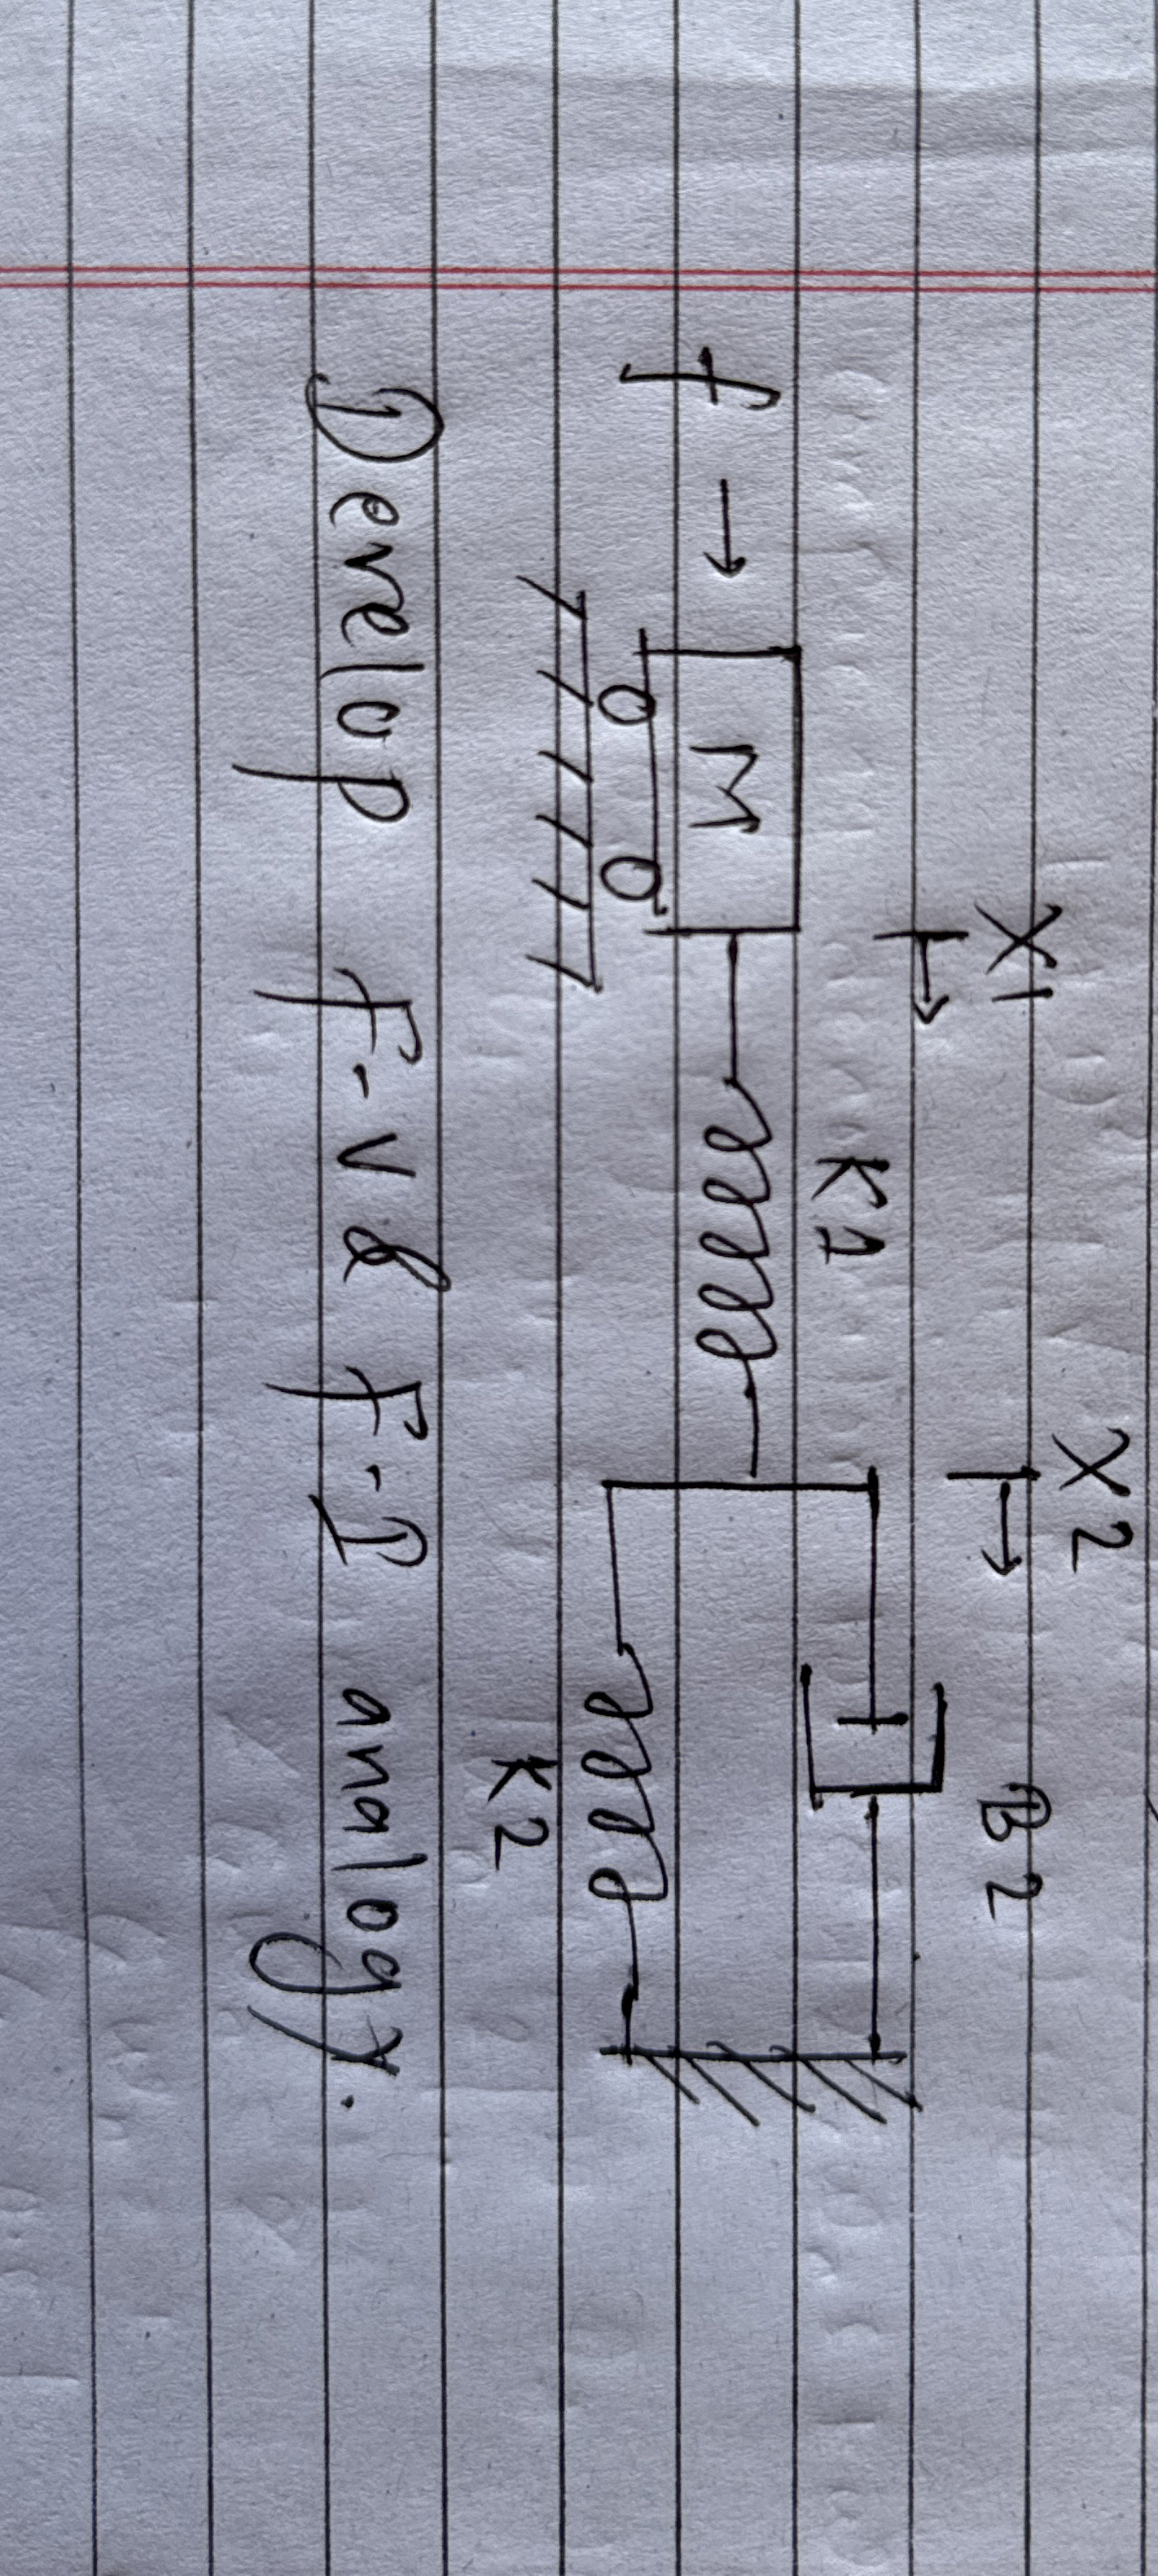 X1 X2
K1 B2
f → M
K2
Develop F-V & F-I analogy.